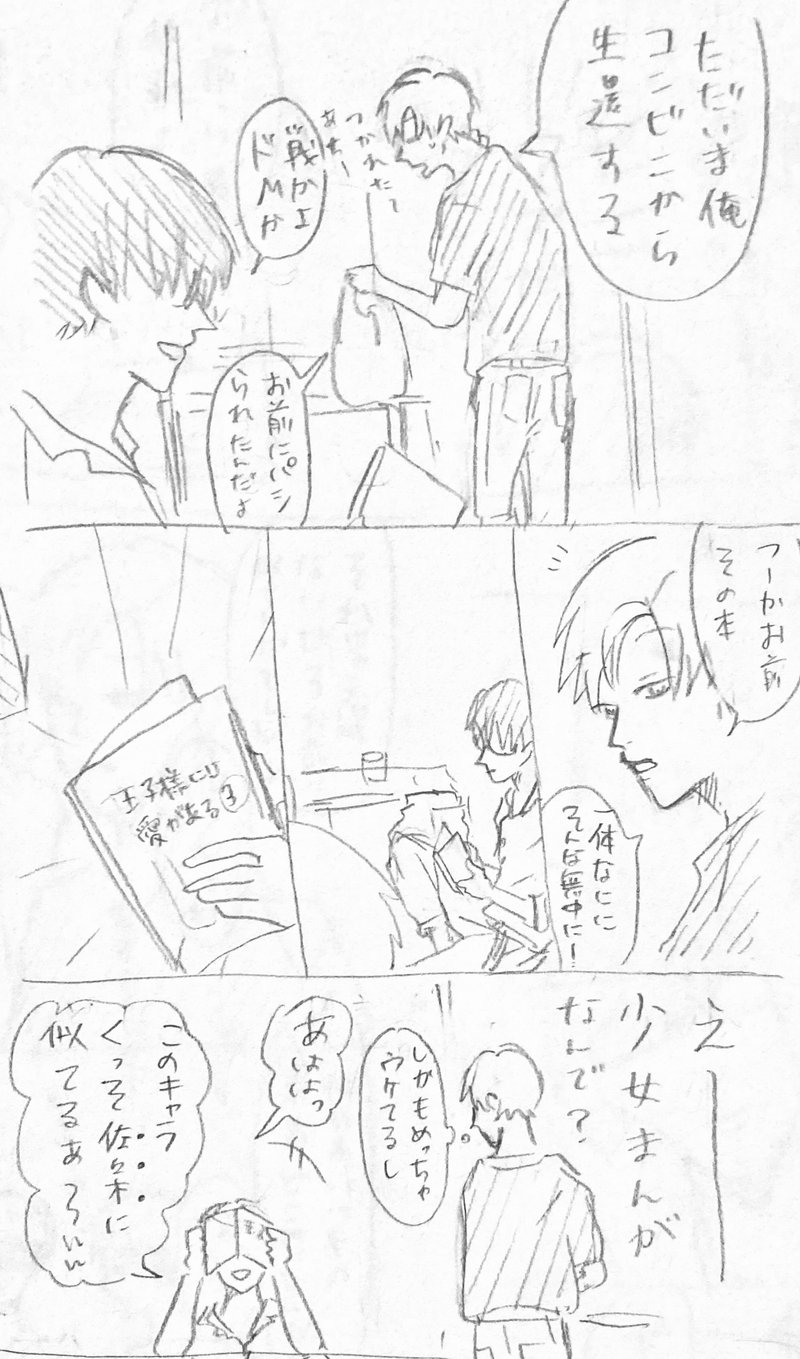 ただいま俺
コンビニから
生還する
つかれたて
あちー
戦かよ
ドMか
お前にパシ
られたんだよ
つーかお前
その本
一体なにに
そんな夢中に!
王子様には
愛がある③
えー
少女まんが
なんで?
しかもめっちゃ
ウケてるし
あははっ
このキャラ
くっそ佐々木に
似てるあ